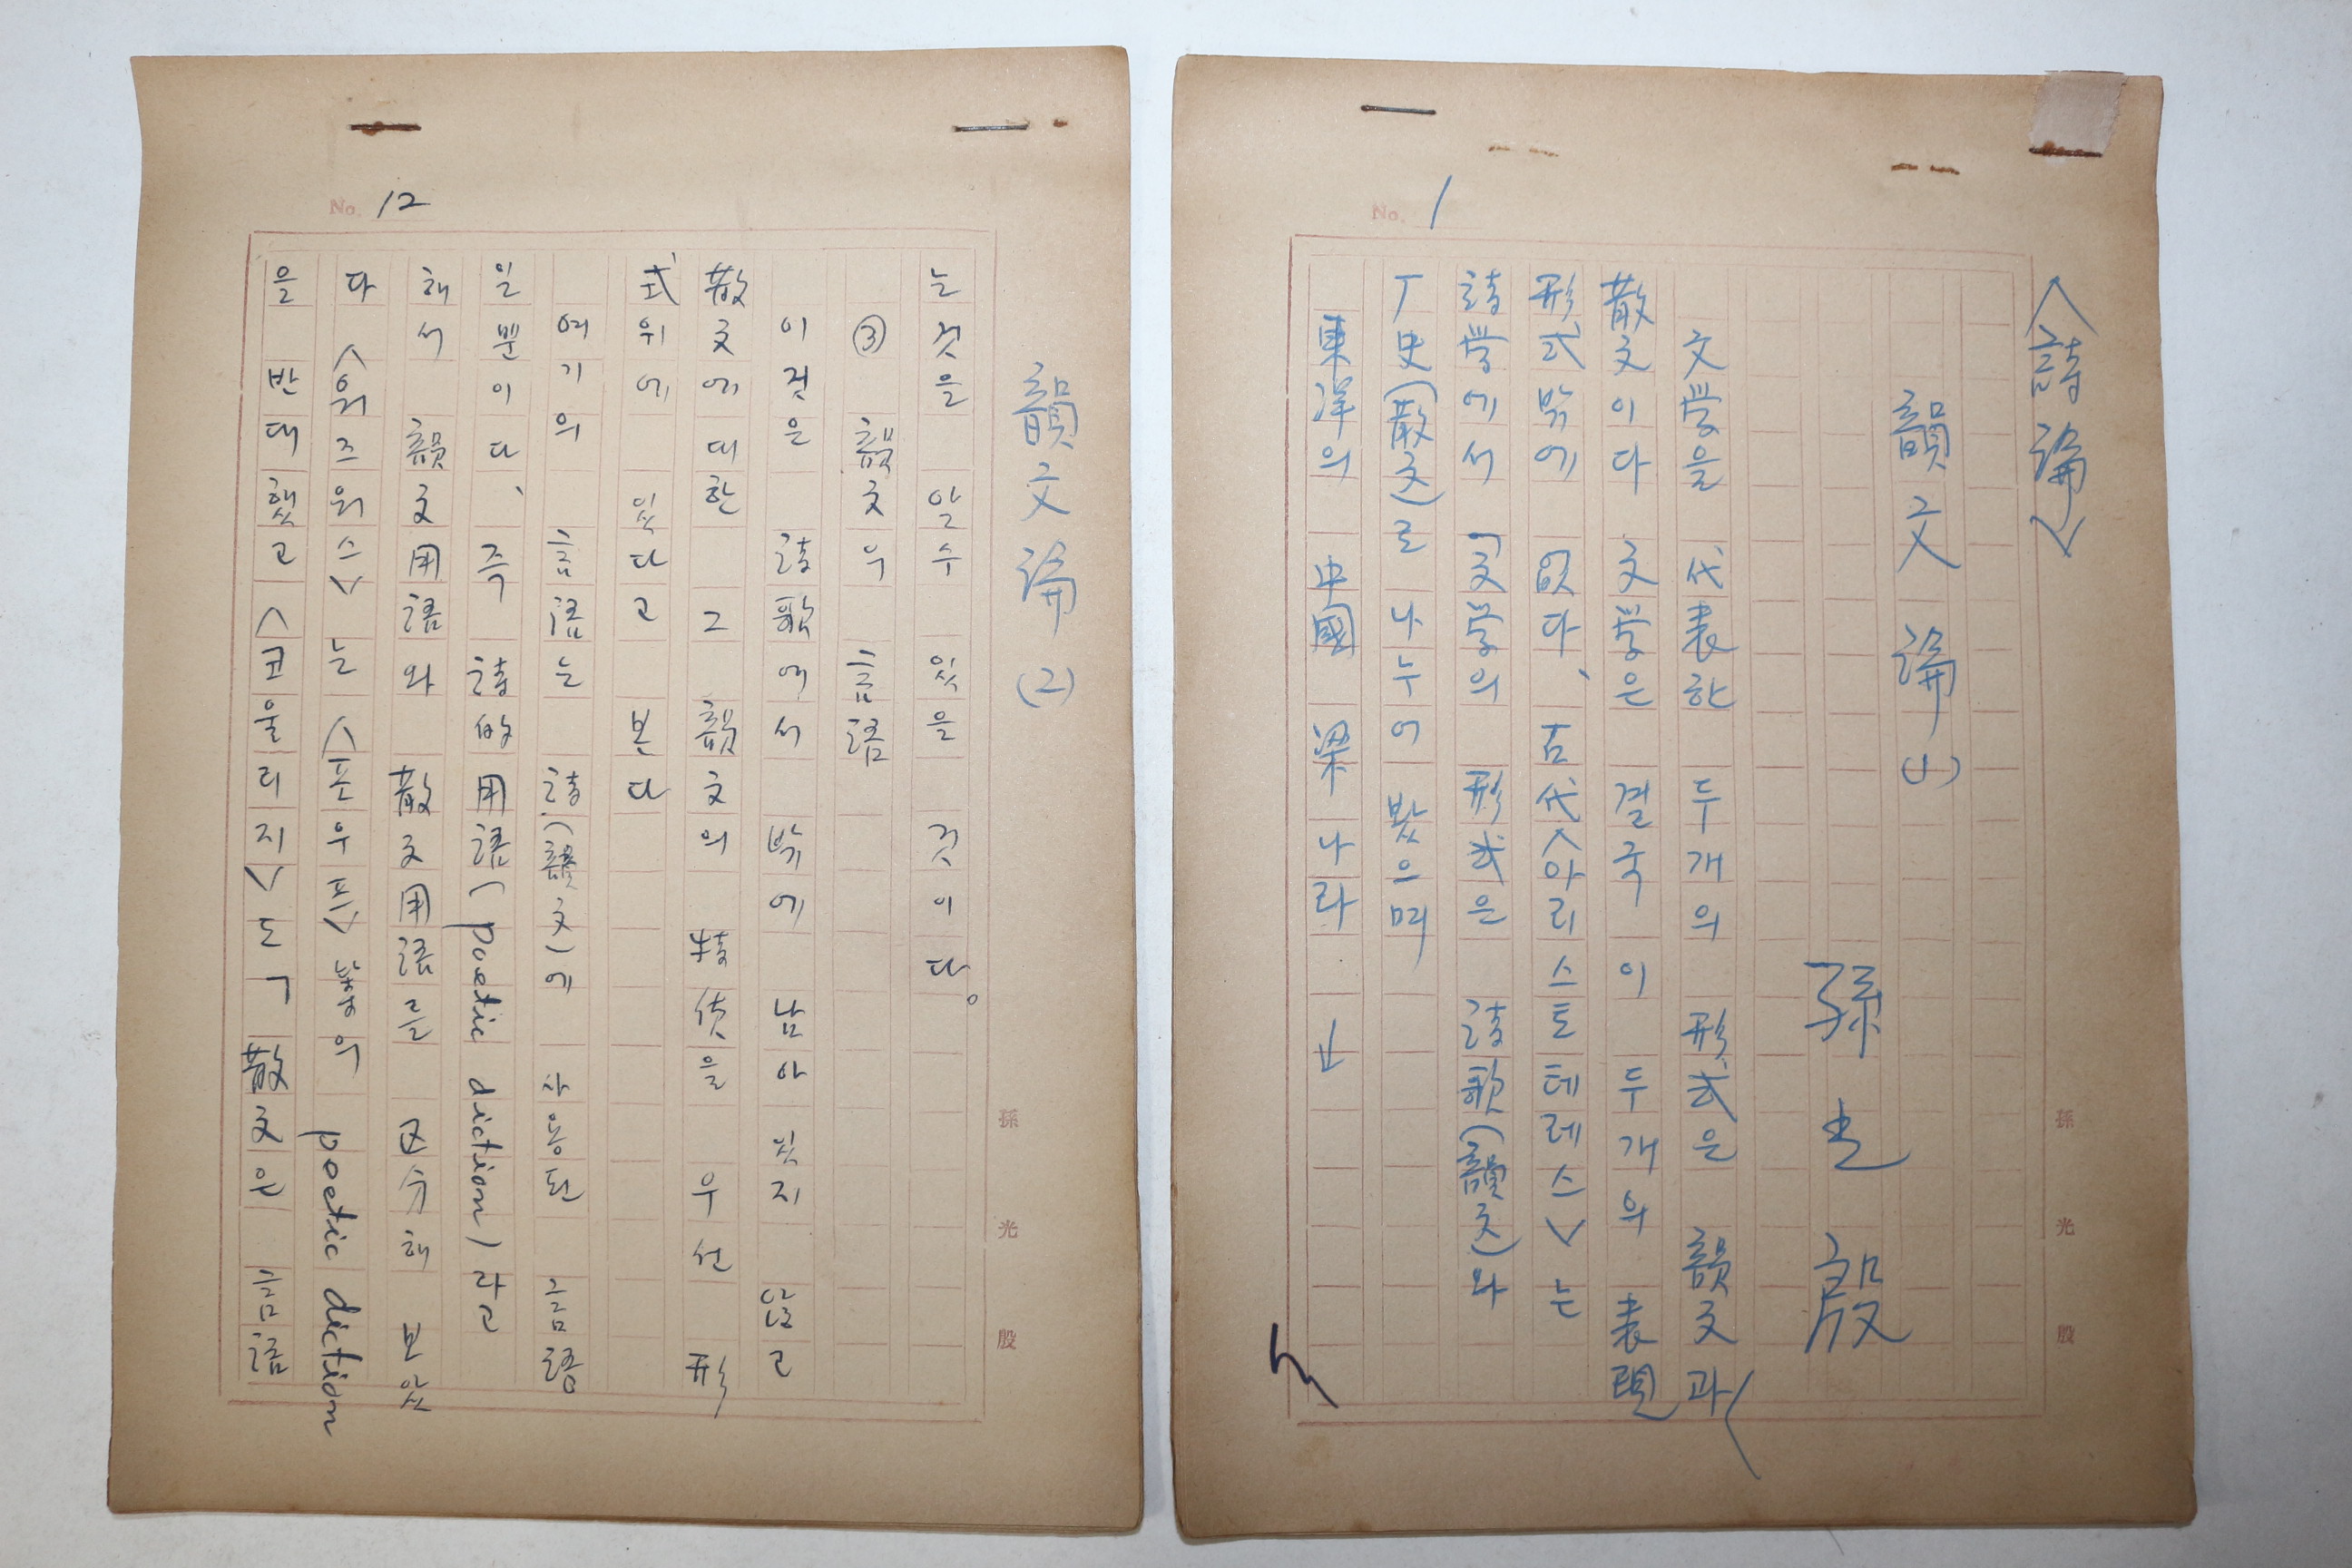 No. 1
<詩論>
韻文論(1)
孫光殷
文学을 代表한 두개의 形式은 韻文과
散文이다 文学은 결국 이 두개의 表現
形式밖에 없다、古代<아리스토테레스>는
詩学에서 「文学의 形式은 詩歌(韻文)와
史(散文)로 나누어 봤으며
東洋의 中國 梁나라
孫光殷
No. 12
韻文論(2)
는것을 알수 있을 것이다。
③ 韻文의 言語
이것은 詩歌에서 밖에 남아 있지 않고
散文에 대한 그 韻文의 特徵을 우선 形
式위에 있다고 본다
여기의 言語는 詩(韻文)에 사용된 言語
일뿐이다、즉 詩的用語(poetic diction)라고
해서 韻文用語와 散文用語를 区分해 보았
다 <워즈워스>는 <포우프> 等의 poetic diction
을 반대했고 <코울리지>도 「散文은 言語
孫光殷